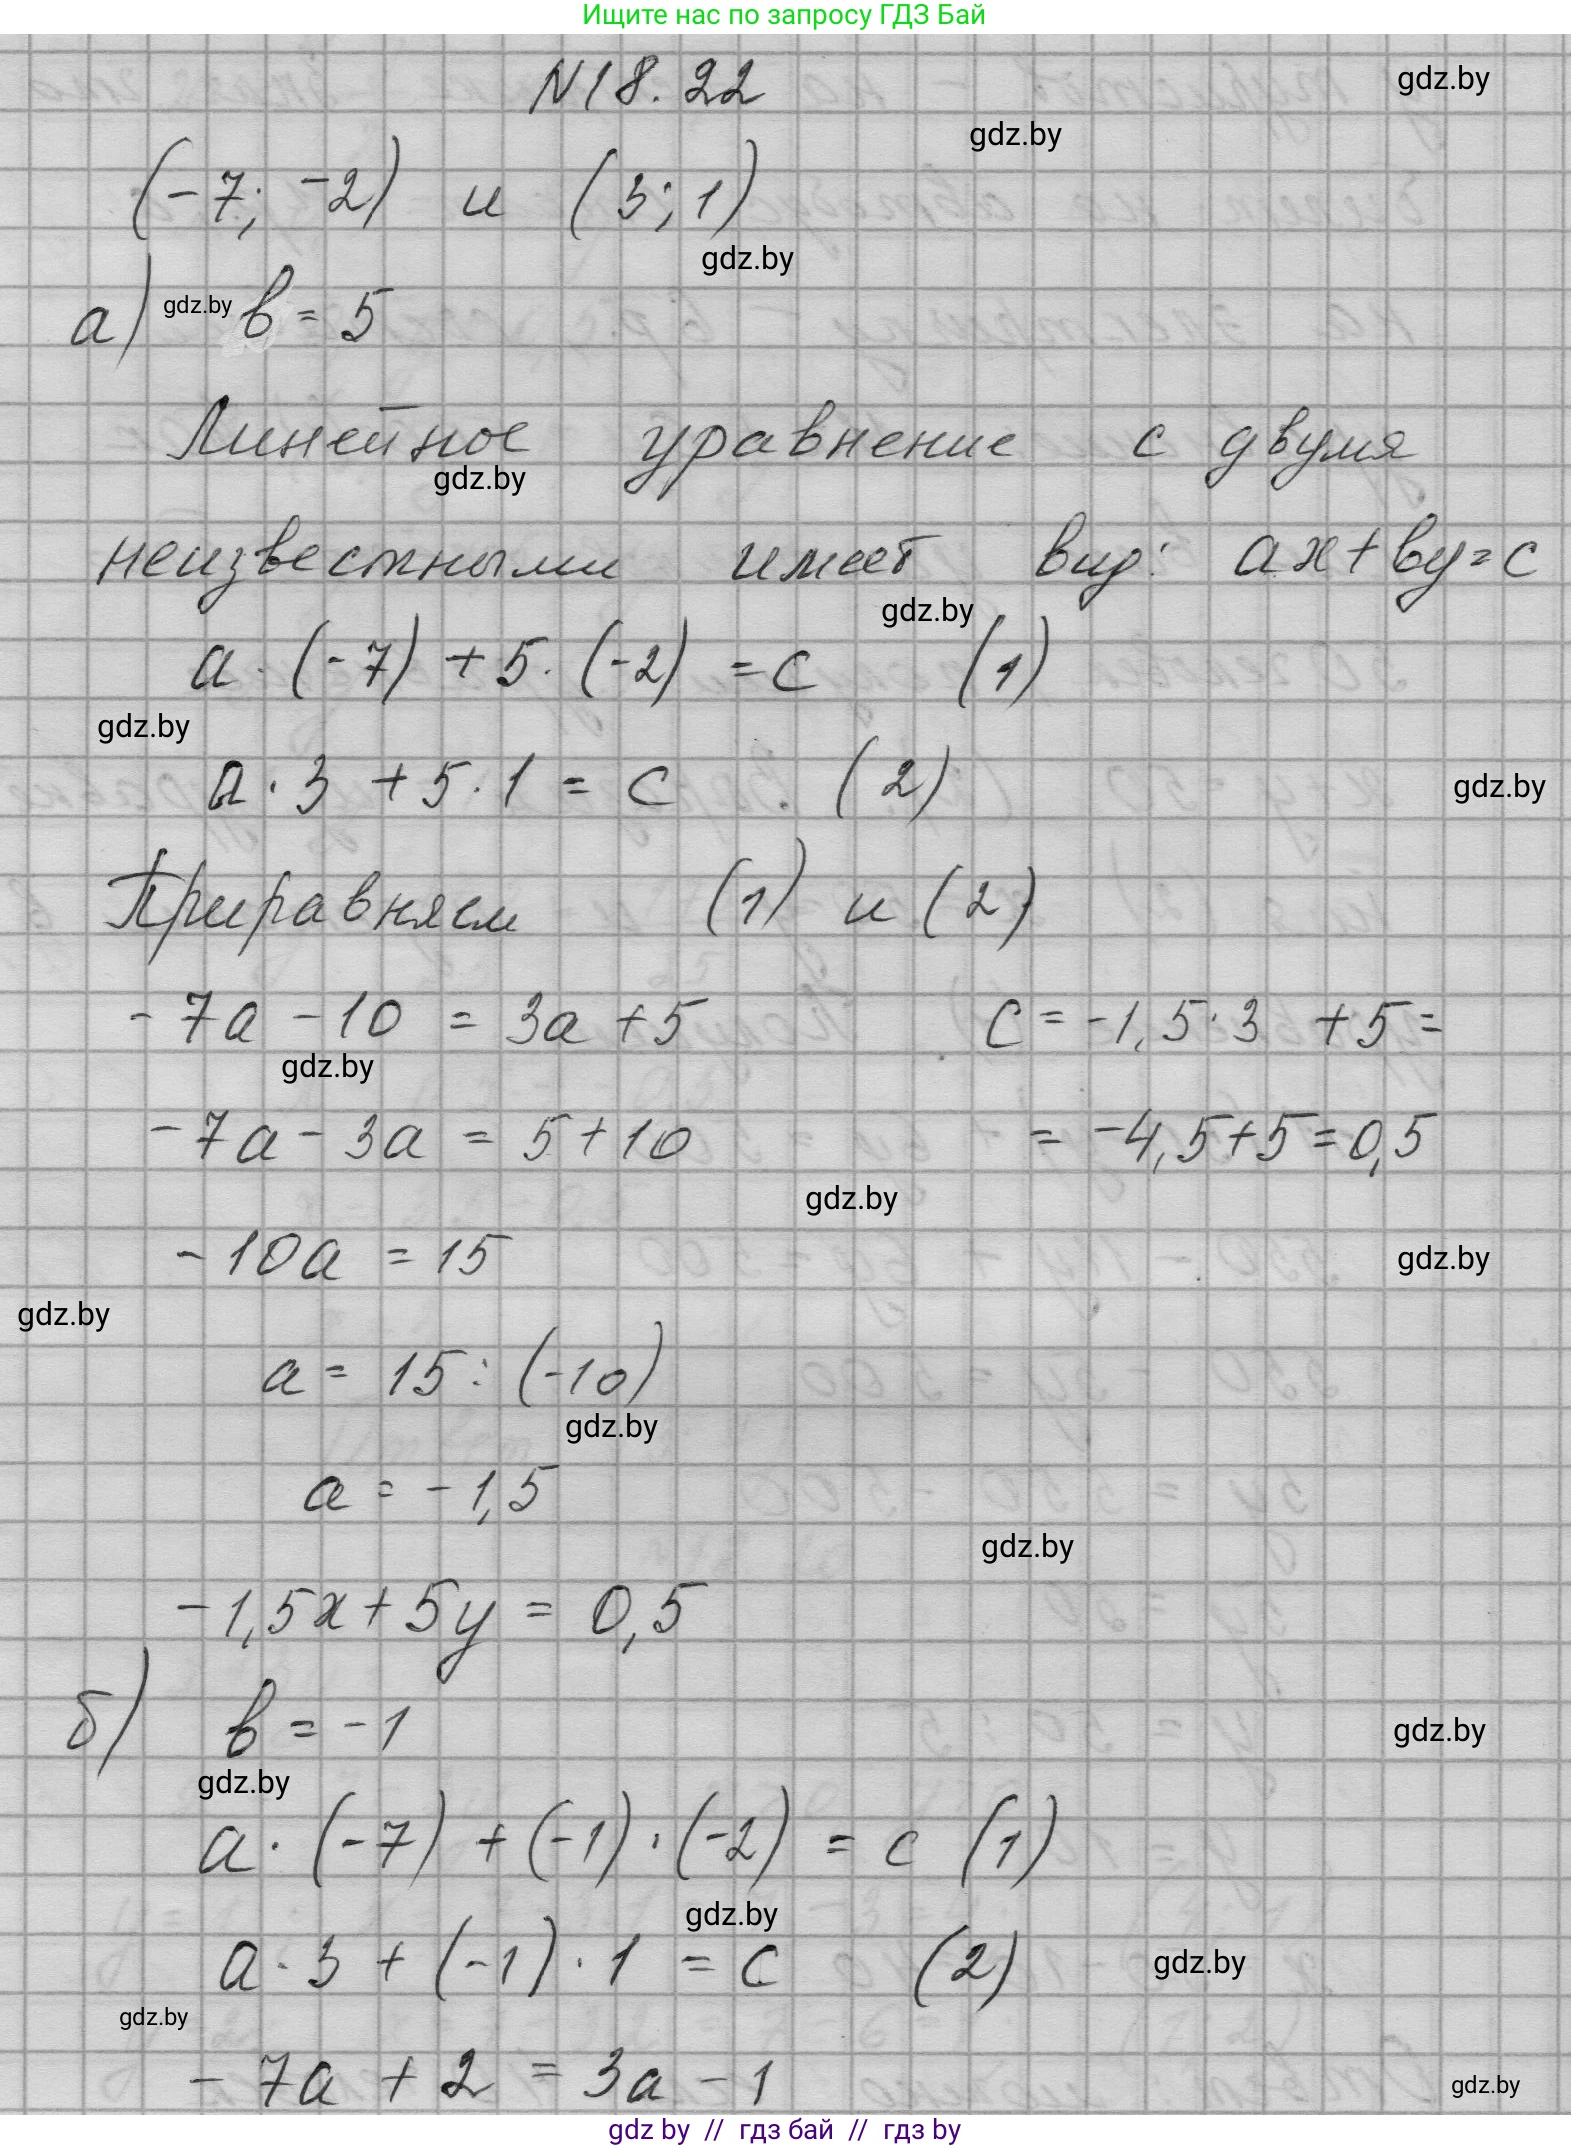 Ищите нас по запросу ГДЗ Бай
N18.22
gdz.by
gdz.by
(-7; -2) и (3; 1)
gdz.by
а) gdz.by в = 5
Линейное уравнение с двумя
gdz.by
неизвестными имеет вид: ax+вy=c
gdz.by
a · (-7) + 5 · (-2) = c (1)
gdz.by
a · 3 + 5 · 1 = c (2)
gdz.by
Приравняем (1) и (2)
-7a - 10 = 3a + 5 c = -1,5 · 3 + 5 =
gdz.by
-7a - 3a = 5 + 10 = -4,5+5=0,5
gdz.by
-10a = 15
gdz.by
gdz.by
a = 15 : (-10)
gdz.by
a = -1,5
gdz.by
-1,5x + 5y = 0,5
б) в = -1
gdz.by
gdz.by
a · (-7) + (-1) · (-2) = c (1)
gdz.by
a · 3 + (-1) · 1 = c (2)
gdz.by
gdz.by
-7a + 2 = 3a - 1
gdz.by
gdz by // гдз бай // гдз by